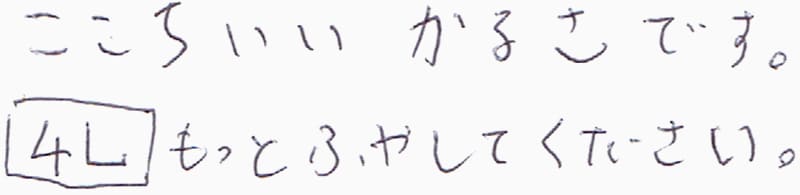 ここちいい かるさ です。
4L もっとふやしてください。